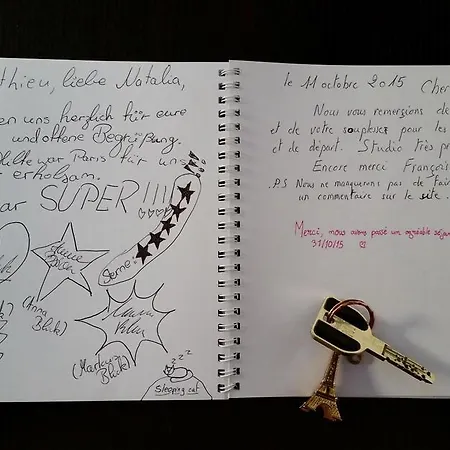 thieu, liebe Natalia,
en uns herzlich für eure
und offene Begrüßung.
war Paris für uns
erholsam.
ar SUPER!!!!
Gerne:
(Anna
Blick)
(Markus
Blick)
zzz
Sleeping cat
le 11 octobre 2015 Cher
Nous vous remercions de
et de votre souplesse pour les
et de départ. Studio très pr
Encore merci Françoi
P.S Nous ne manquerons pas de fai
un commentaire sur le site.
Merci, nous avons passé un agréable séjou
31/10/15